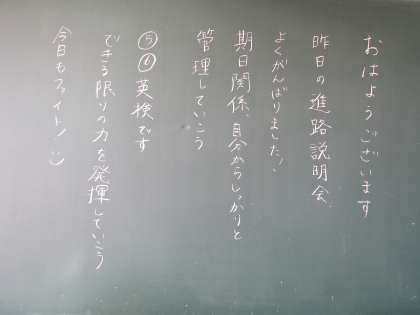 おはようございます
昨日の進路説明会
よくがんばりました!
期日関係、自分からしっかりと
管理していこう
⑤⑥英検です
できる限りの力を発揮していこう
今日もファイト! :)